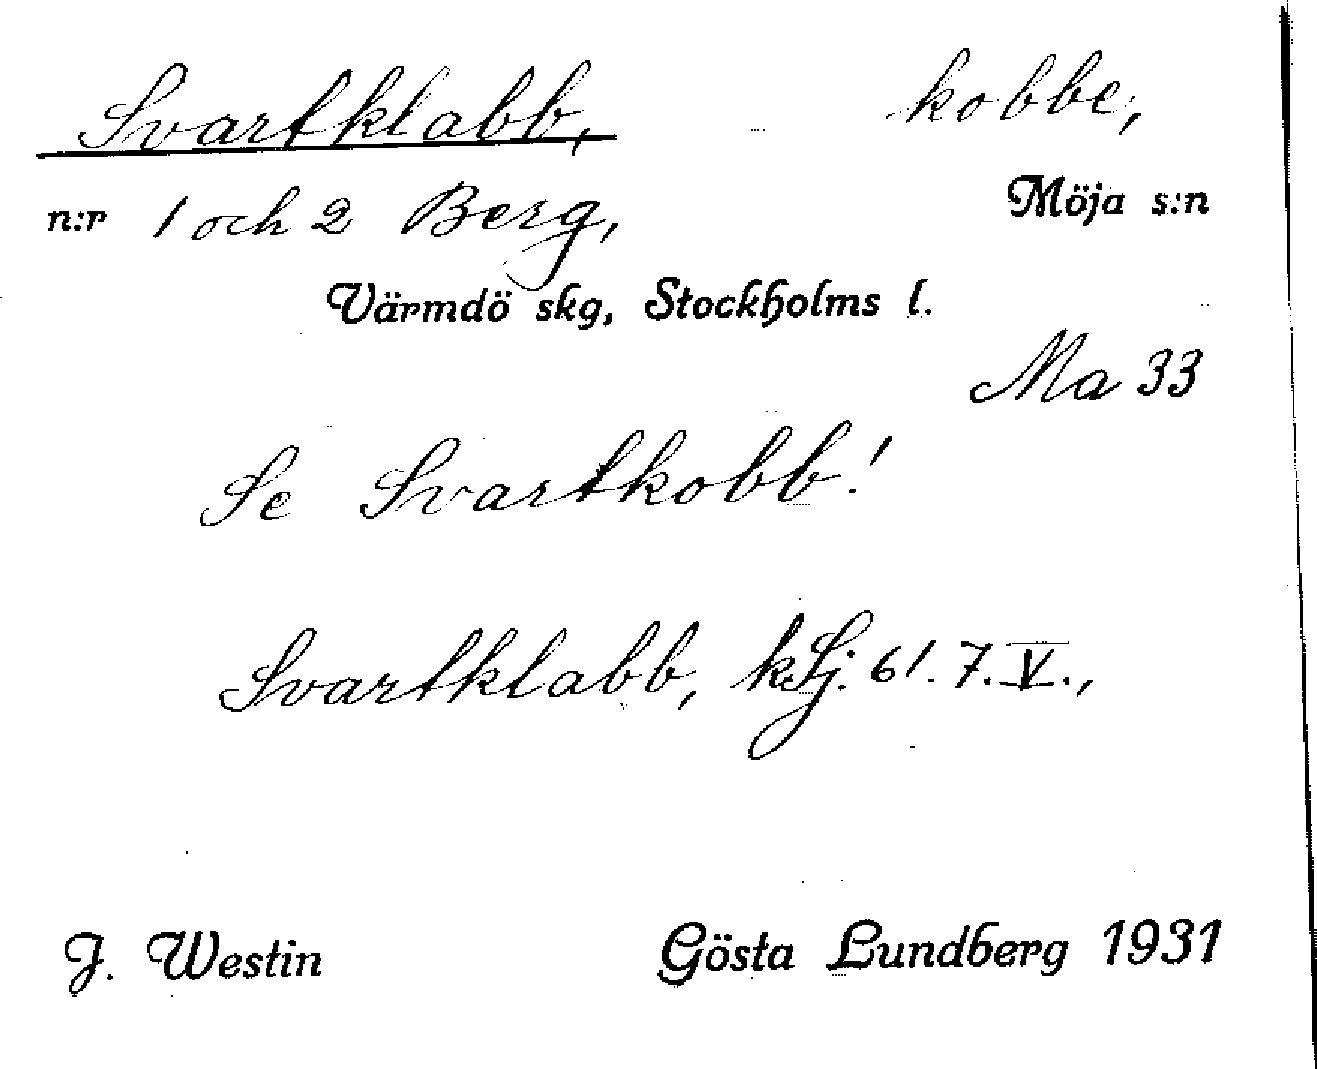 Svartklabb, kobbe,
n:r 1 och 2 Berg, Möja s:n
Värmdö skg, Stockholms l.
Ma 33
Se Svartkobb!
Svartklabb, kSj. 61. 7. V.,
J. Westin Gösta Lundberg 1931